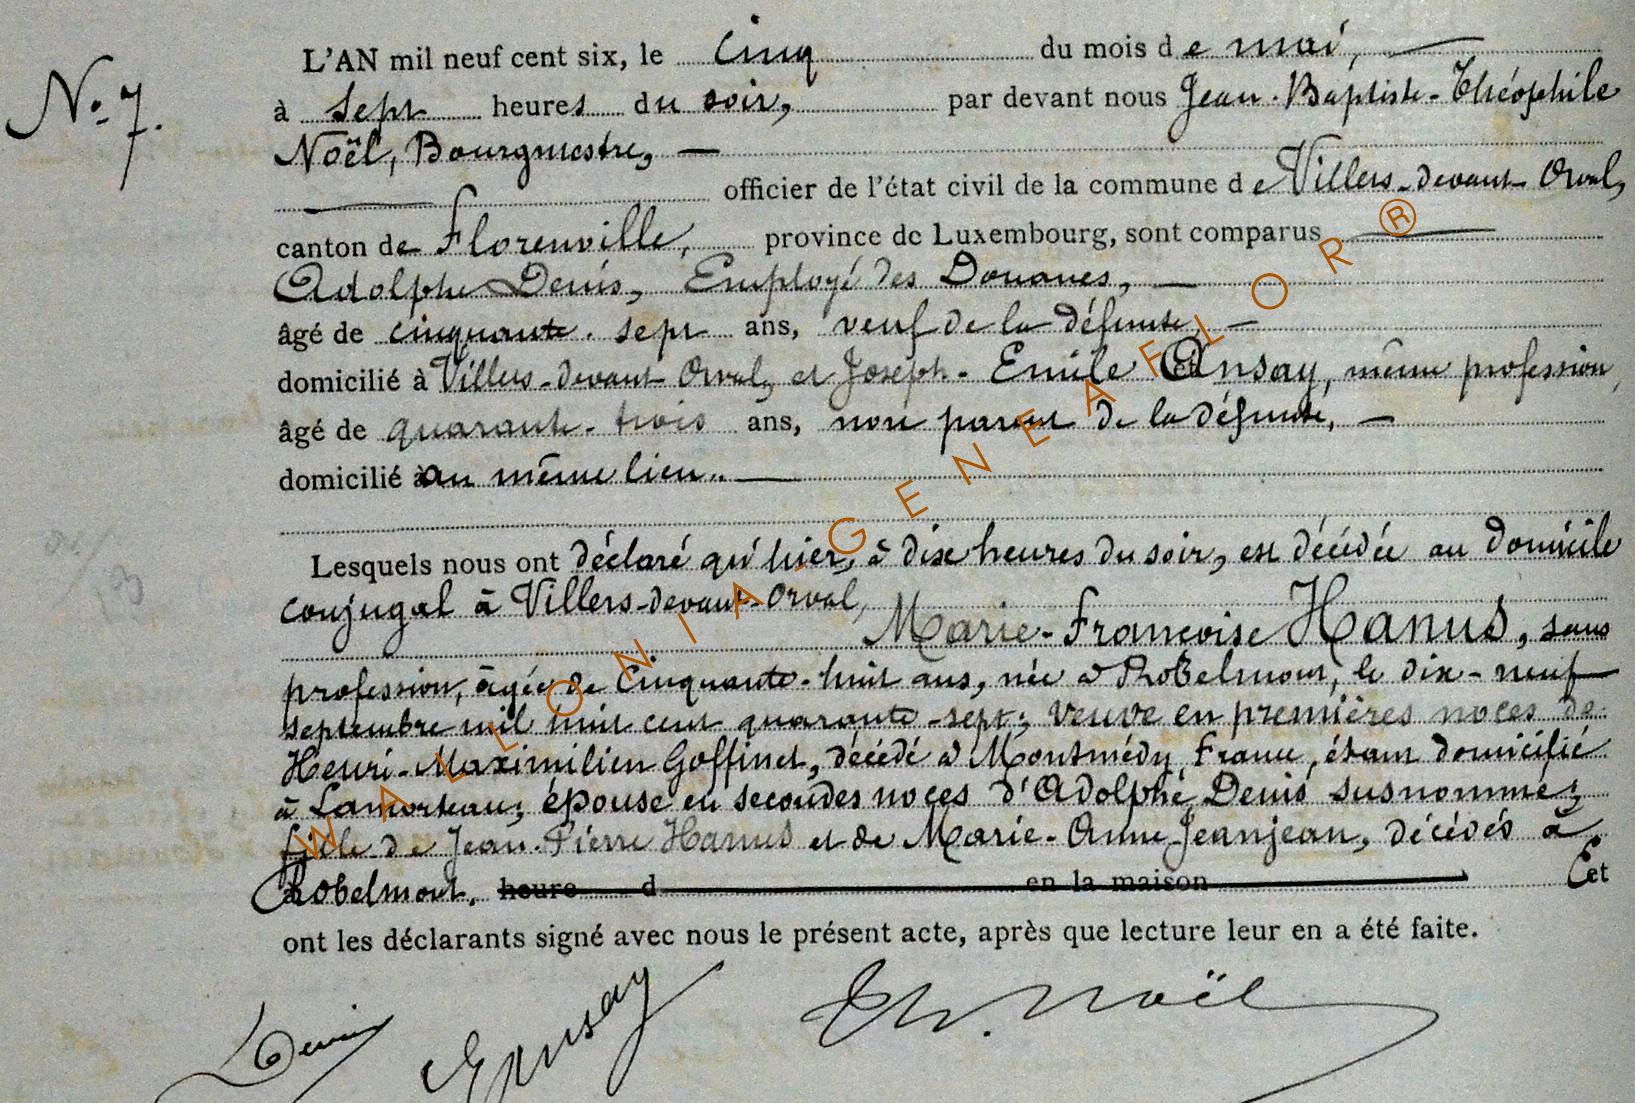 N° 7.
L'AN mil neuf cent six, le cinq du mois de mai,
à sept heures du soir, par devant nous Jean-Baptiste-Théophile
Noël, Bourgmestre,
officier de l'état civil de la commune de Villers-devant-Orval,
canton de Florenville, province de Luxembourg, sont comparus
Adolphe Denis, Employé des Douanes,
âgé de cinquante-sept ans, veuf de la défunte,
domicilié à Villers-devant-Orval, et Joseph-Emile Ansay, même profession,
âgé de quarante-trois ans, non parent de la défunte,
domicilié au même lieu.
Lesquels nous ont déclaré qu'hier, à dix heures du soir, est décédée au domicile
conjugal à Villers-devant-Orval,
Marie-Françoise Hanus, sans
profession, âgée de cinquante-huit ans, née à Robelmont, le dix-neuf
septembre mil huit cent quarante-sept; veuve en premières noces de
Henri-Maximilien Goffinet, décédé à Montmédy, France, étant domicilié
à Lamorteau; épouse en secondes noces d'Adolphe Denis susnommé;
fille de Jean-Pierre Hanus et de Marie-Anne Jeanjean, décédés à
Robelmont. heure d en la maison Et
ont les déclarants signé avec nous le présent acte, après que lecture leur en a été faite.
Denis Ansay Th. Noël
WALLONIA-GENEAFLOR®